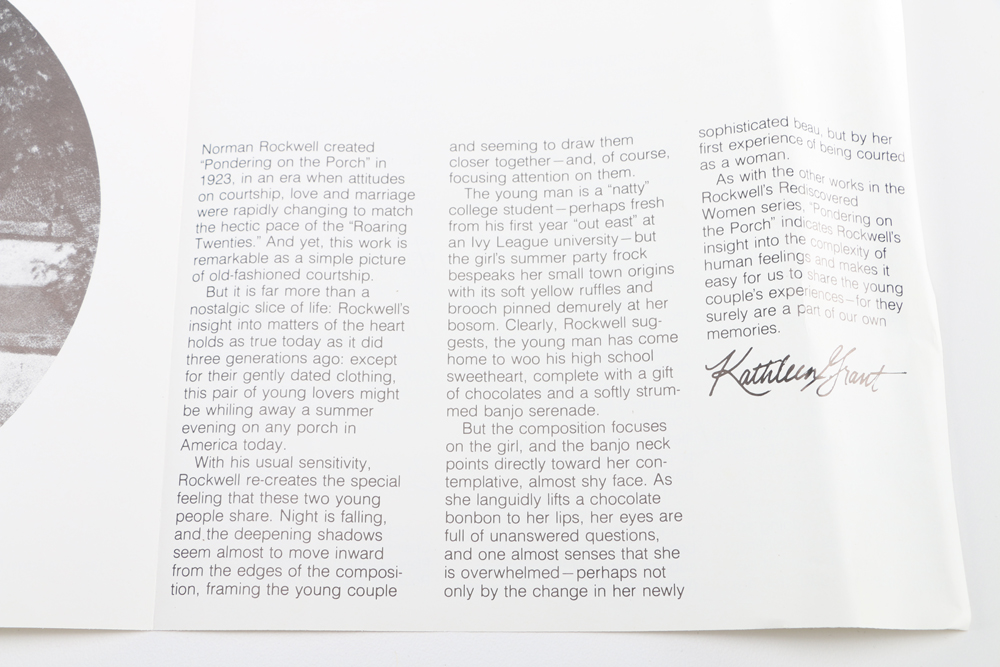 Norman Rockwell created
“Pondering on the Porch” in
1923, in an era when attitudes
on courtship, love and marriage
were rapidly changing to match
the hectic pace of the “Roaring
Twenties.” And yet, this work is
remarkable as a simple picture
of old-fashioned courtship.
But it is far more than a
nostalgic slice of life: Rockwell’s
insight into matters of the heart
holds as true today as it did
three generations ago: except
for their gently dated clothing,
this pair of young lovers might
be whiling away a summer
evening on any porch in
America today.
With his usual sensitivity,
Rockwell re-creates the special
feeling that these two young
people share. Night is falling,
and the deepening shadows
seem almost to move inward
from the edges of the composi-
tion, framing the young couple
and seeming to draw them
closer together—and, of course,
focusing attention on them.
The young man is a “natty”
college student—perhaps fresh
from his first year “out east” at
an Ivy League university—but
the girl’s summer party frock
bespeaks her small town origins
with its soft yellow ruffles and
brooch pinned demurely at her
bosom. Clearly, Rockwell sug-
gests, the young man has come
home to woo his high school
sweetheart, complete with a gift
of chocolates and a softly strum-
med banjo serenade.
But the composition focuses
on the girl, and the banjo neck
points directly toward her con-
templative, almost shy face. As
she languidly lifts a chocolate
bonbon to her lips, her eyes are
full of unanswered questions,
and one almost senses that she
is overwhelmed—perhaps not
only by the change in her newly
sophisticated beau, but by her
first experience of being courted
as a woman.
As with the other works in the
Rockwell’s Rediscovered
Women series, “Pondering on
the Porch” indicates Rockwell’s
insight into the complexity of
human feelings and makes it
easy for us to share the young
couple’s experiences—for they
surely are a part of our own
memories.
Kathleen Grant